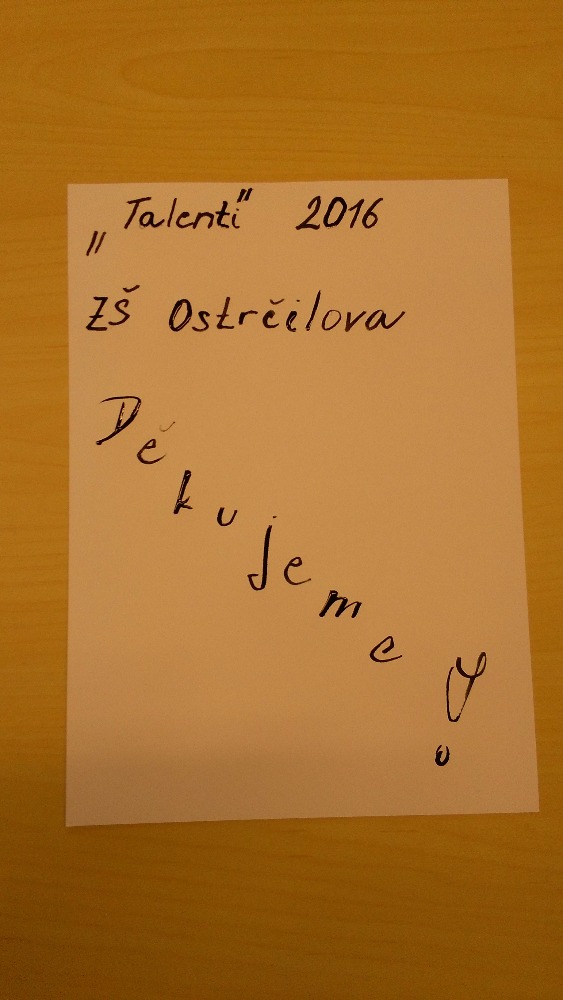 „Talenti" 2016
ZŠ Ostrčilova
Děkujeme!